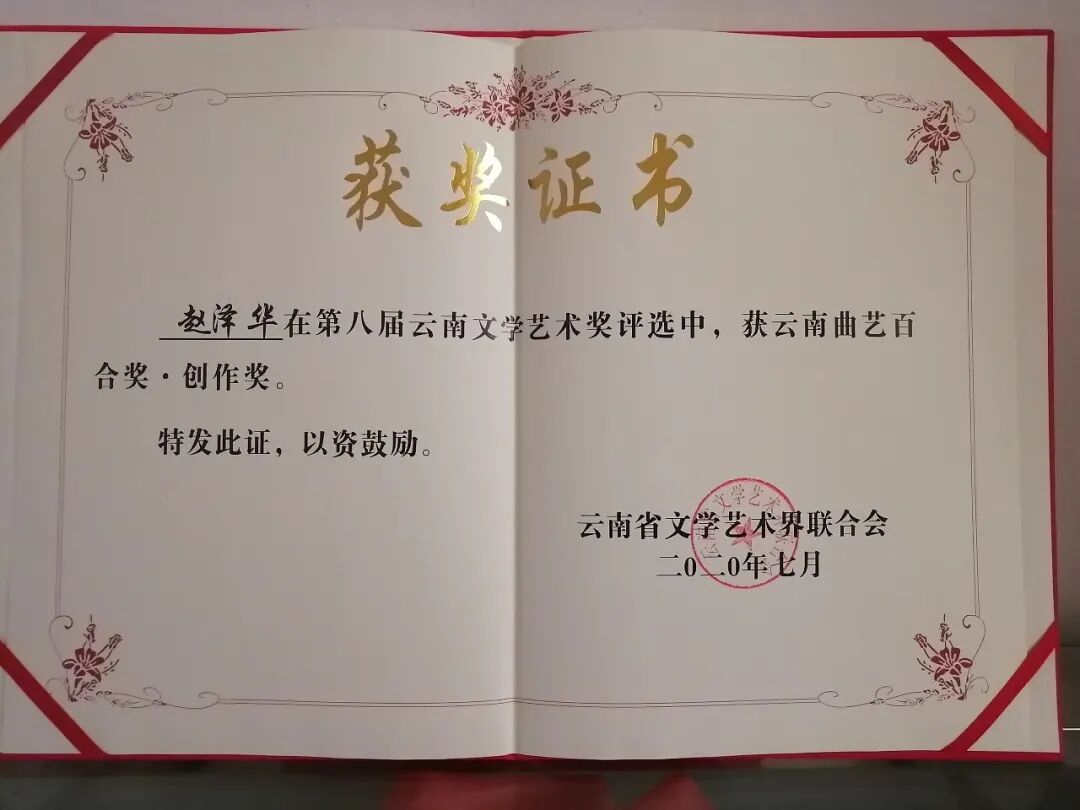 获奖证书
赵泽华在第八届云南文学艺术奖评选中，获云南曲艺百
合奖·创作奖。
特发此证，以资鼓励。
云南省文学艺术界联合会
二〇二〇年七月